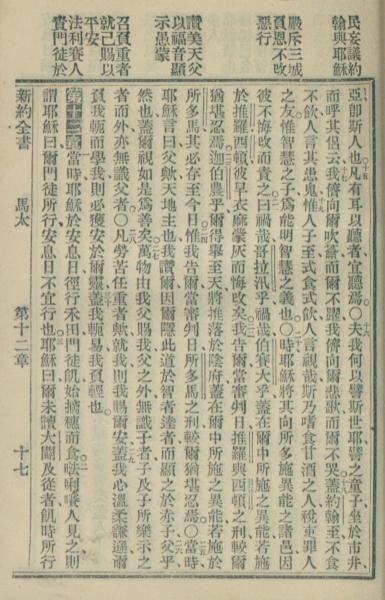 民妄議約
翰與耶穌
嚴斥三城
負恩不改
惡行
讚美天父
以福音顯
示愚蒙
召負重者
就己賜以
平安
法利賽人
責門徒於
亞卽斯人也凡有耳以聽者宜聽焉○夫我何以譬斯世耶譬之童子坐於市井
而呼其侶云我儕向爾吹籥而爾不躍我儕向爾悲歌而爾不哭蓋約翰至不食
不飲人言其患鬼惟人子至式食式飲人言視哉斯乃嗜食甘酒之人稅吏罪人
之友惟智慧之子爲能明智慧之義也○時耶穌將其向所多施異能之諸邑因
彼不悔改而責之曰禍哉哥拉汛乎禍哉伯賽大乎蓋在爾中所施之異能若施
於推羅西頓彼早衣麻蒙灰而悔改矣我告爾當審判日推羅與西頓之刑較爾
猶堪忍焉迦伯農乎爾得舉至天將推落於陰府蓋在爾中所施之異能若施於
所多馬其必存至今日惟我告爾當審判日所多馬之刑較爾猶堪忍焉○當時
耶穌言曰父歟天地主也我讚爾因爾隱此道於智者達者而顯之於赤子父乎
然也蓋爾視如是爲善矣萬物由我父賜我父之外無識子者子及子所樂示之
者而外亦無識父者○凡勞苦任重者歟就我則我賜爾安蓋我心溫柔謙遜爾
負我軛而學我則必獲安於爾靈蓋我軛易我負輕也
第十二章當時耶穌於安息日徑行禾田門徒飢始摘穗而食人見之則
謂耶穌曰爾門徒所行安息日不宜行也耶穌曰爾未讀大闢及從者飢時所行
新約全書 馬太 第十二章 十七